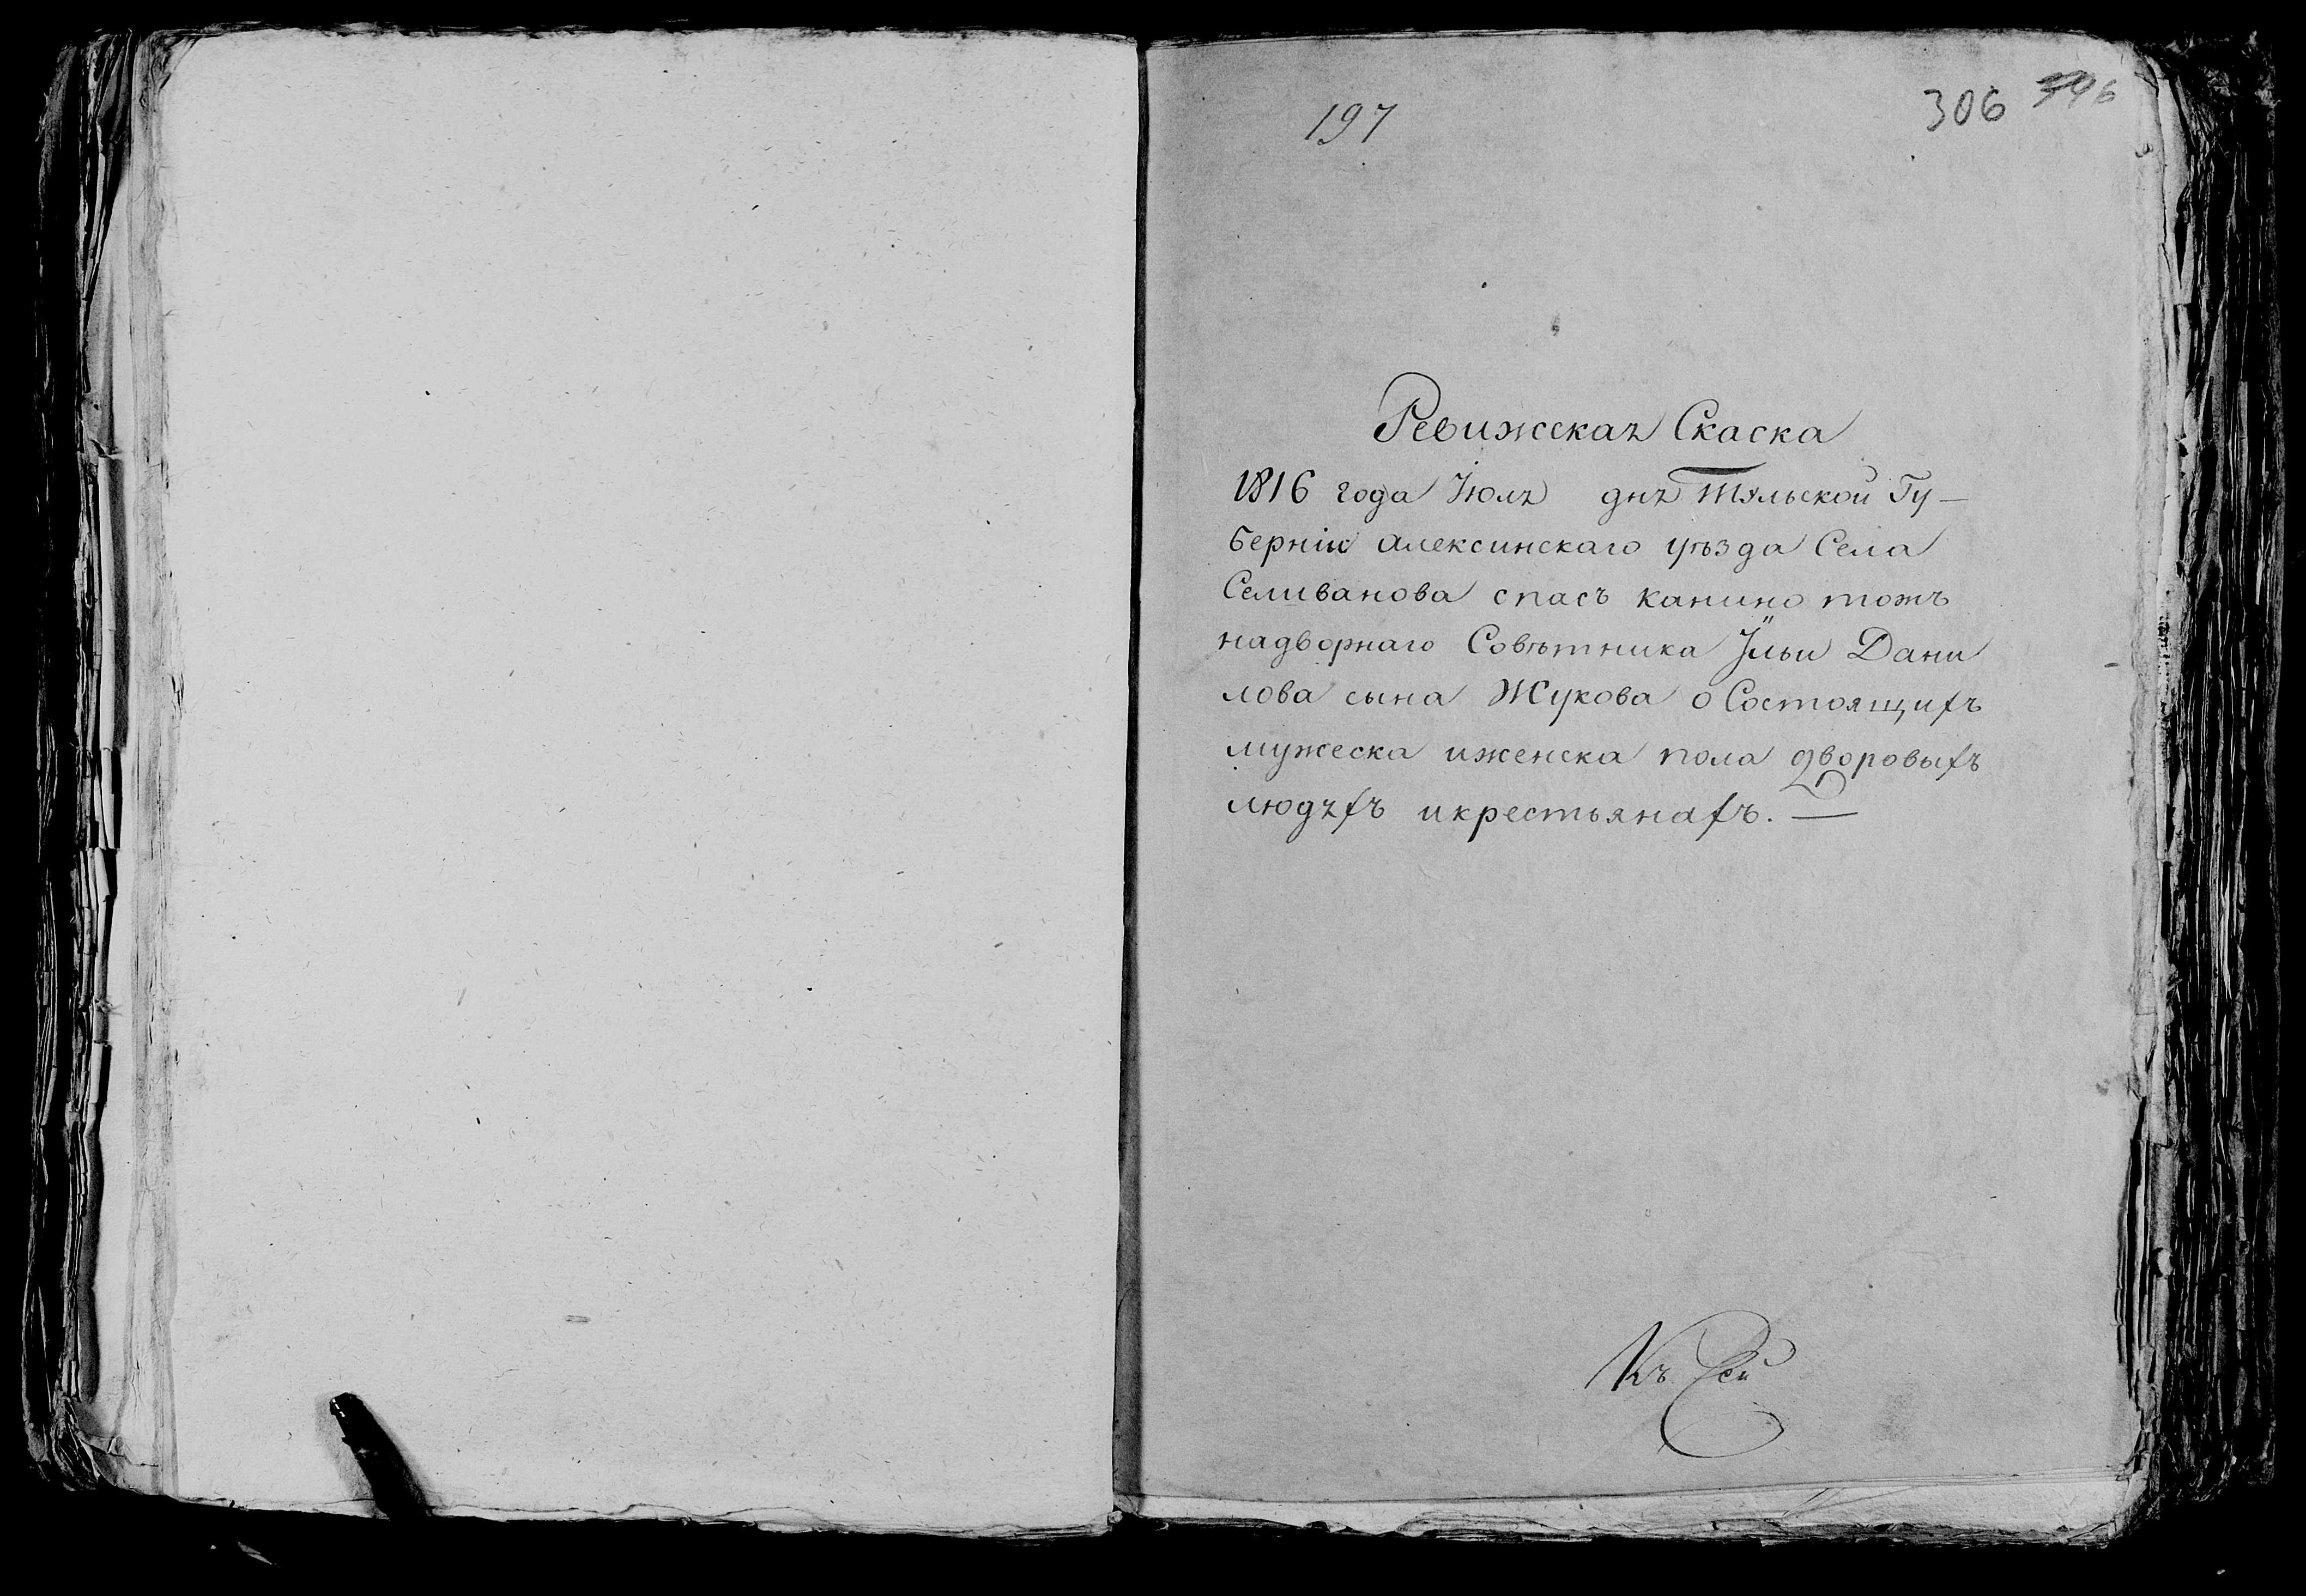 197
306
Ревижская Скаска
1816 года Июля дня Тульской Гу-
берніи алексинскаго уѣзда Села
Селиванова спасъ канино тожъ
надворнаго Совѣтника Ильи Дани
лова сына Жукова о Состоящихъ
мужеска иженска пола дворовыхъ
людяхъ икрестьянахъ. —
Къ